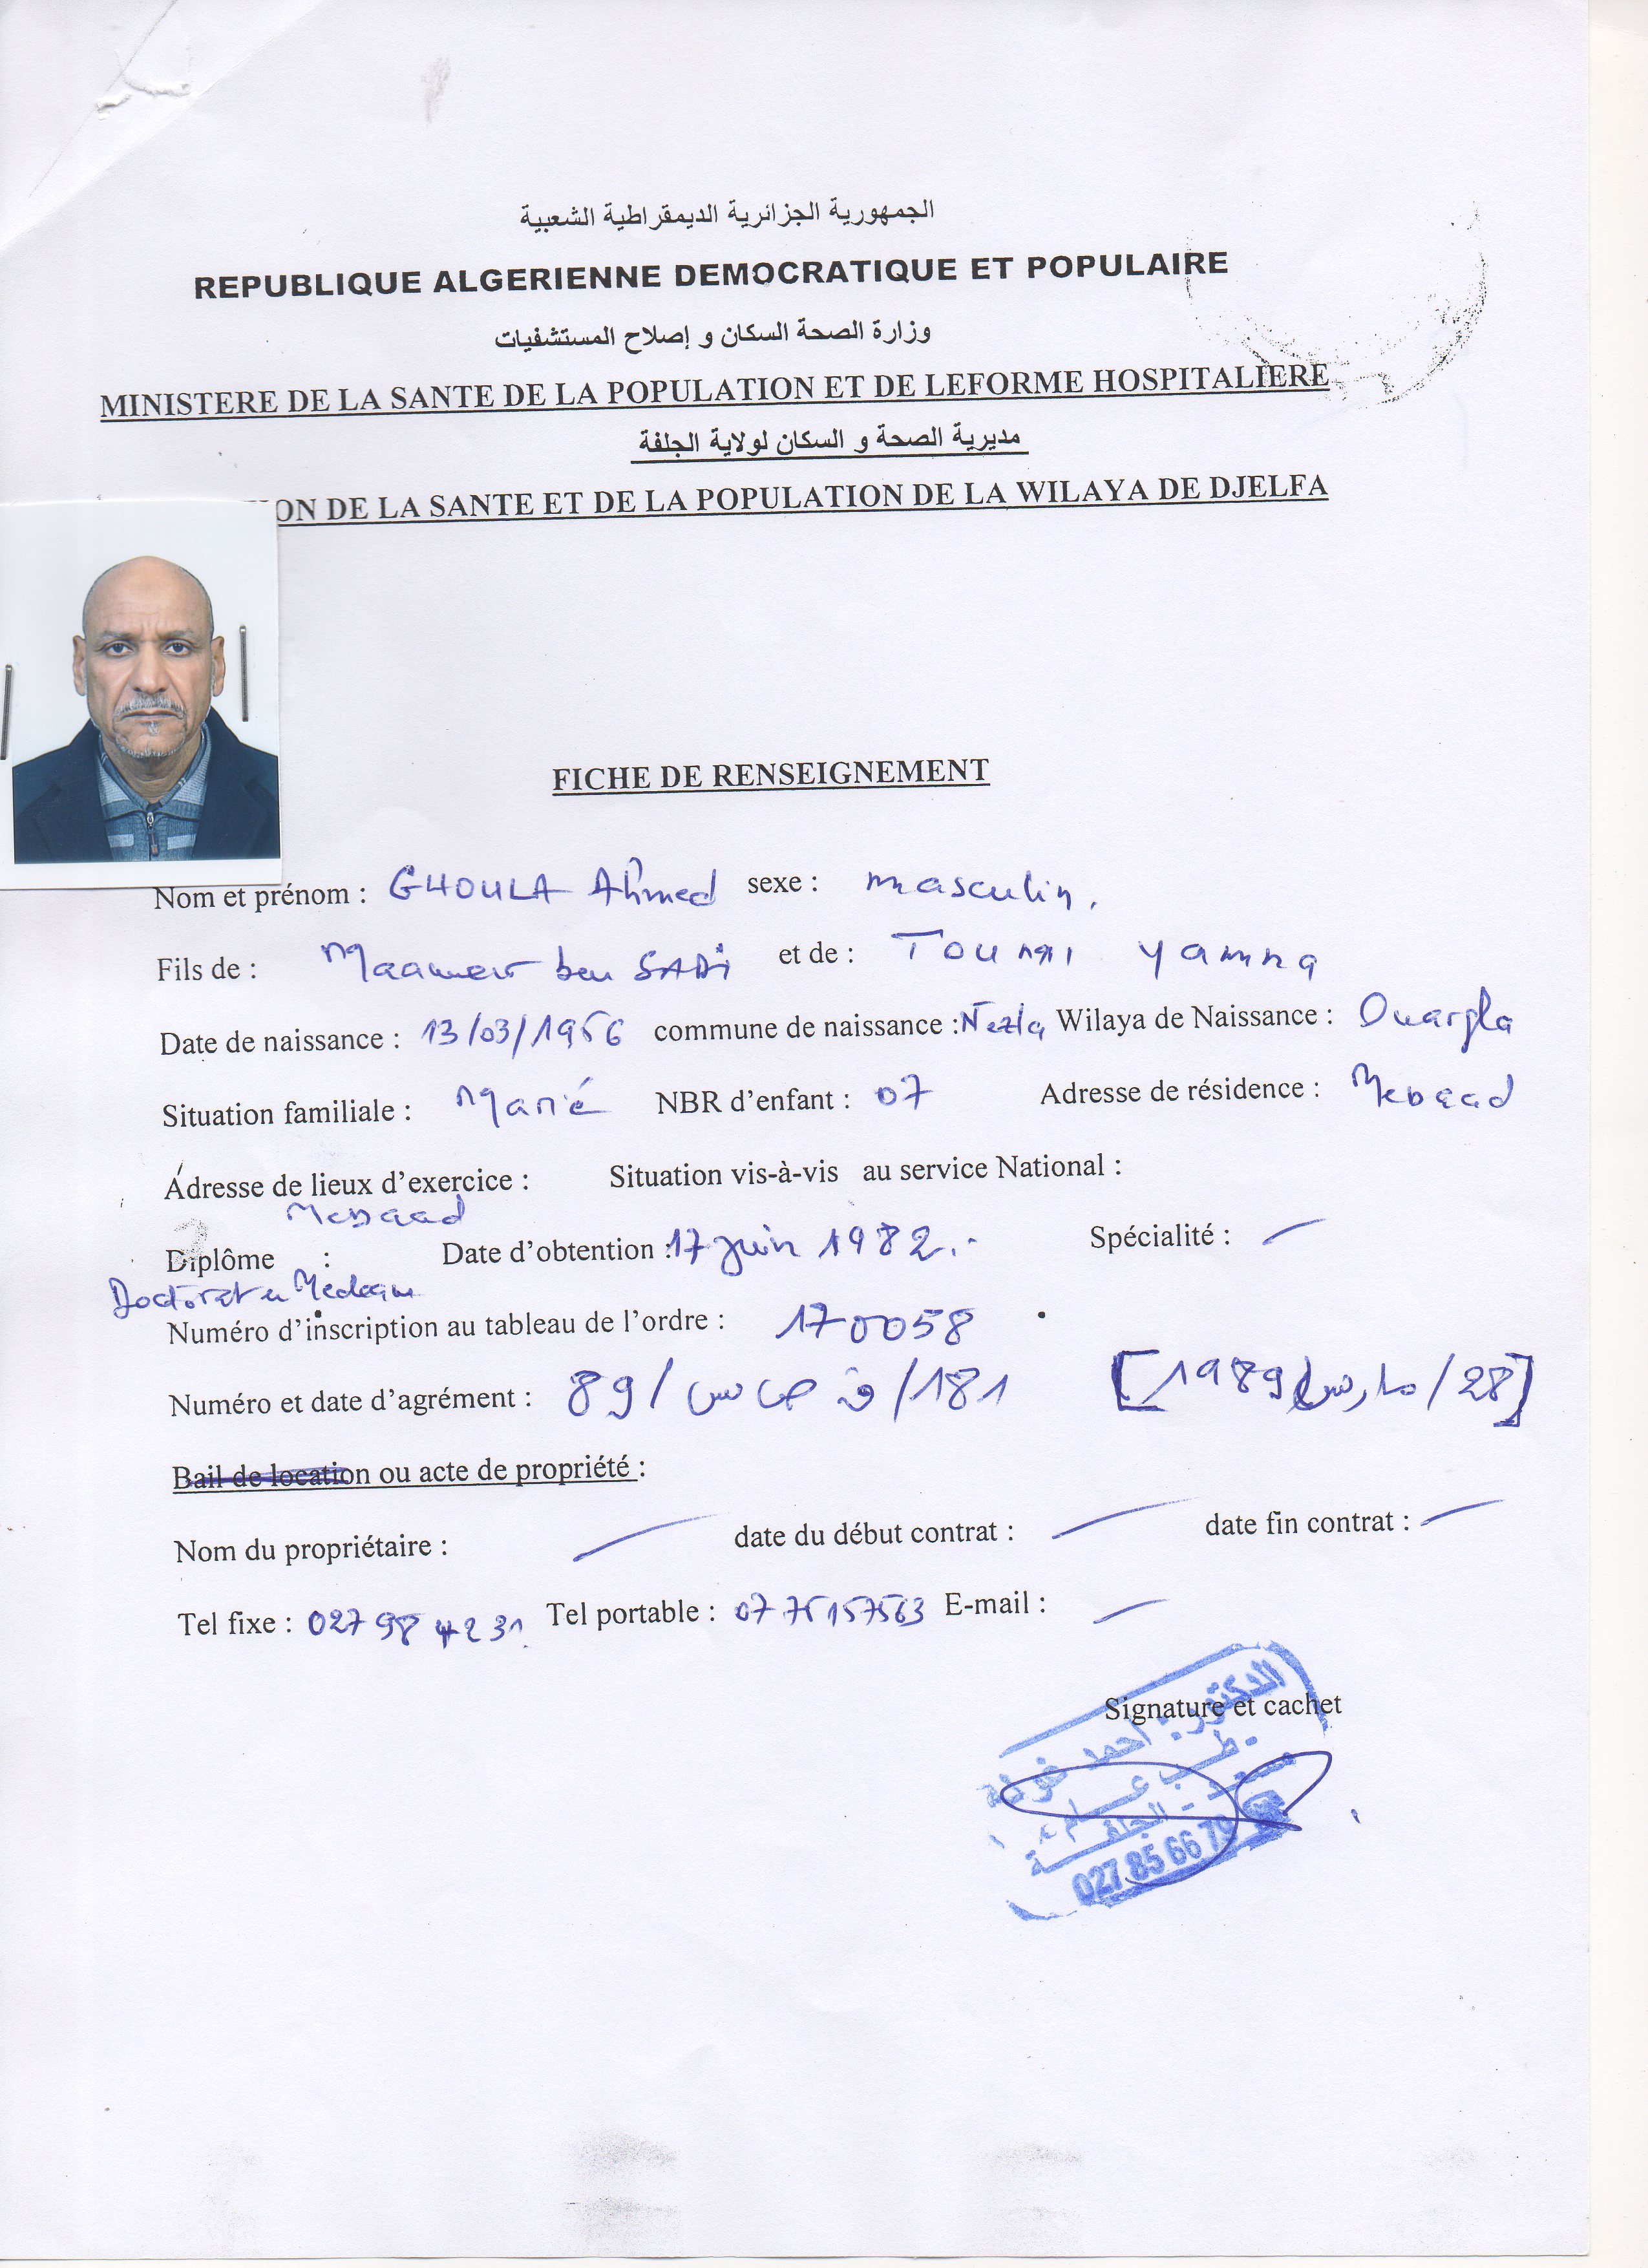 الجمهورية الجزائرية الديمقراطية الشعبية
REPUBLIQUE ALGERIENNE DEMOCRATIQUE ET POPULAIRE
وزارة الصحة السكان و إصلاح المستشفيات
MINISTERE DE LA SANTE DE LA POPULATION ET DE LEFORME HOSPITALIERE
مديرية الصحة و السكان لولاية الجلفة
ION DE LA SANTE ET DE LA POPULATION DE LA WILAYA DE DJELFA
FICHE DE RENSEIGNEMENT
Nom et prénom : GHOULA Ahmed sexe : masculin.
Fils de : Maamer ben SADi et de : TOUMI Yamna
Date de naissance : 13/03/1956 commune de naissance : Nezla Wilaya de Naissance : Ouargla
Situation familiale : Marié NBR d'enfant : 07 Adresse de résidence : Messaad
Adresse de lieux d'exercice : Situation vis-à-vis au service National :
Messaad
Diplôme : Date d'obtention : 17 juin 1982.- Spécialité : —
Doctorat en Medecine
Numéro d'inscription au tableau de l'ordre : 170058
Numéro et date d'agrément : 89/ س ص /181 [28/مارس/1989]
Bail de location ou acte de propriété :
Nom du propriétaire : — date du début contrat : — date fin contrat : —
Tel fixe : 027 98 42 31. Tel portable : 0775157563 E-mail : —
Signature et cachet
الدكتور: أحمد غولة
طب عام
مسعد - الجلفة
027 85 66 79